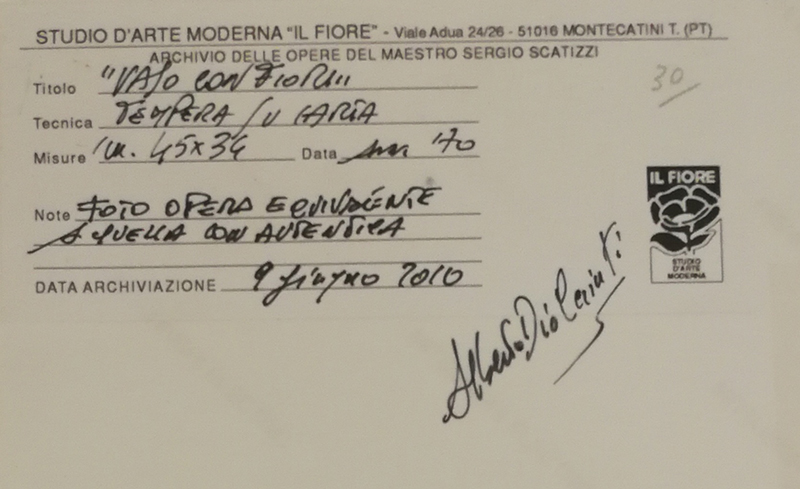 STUDIO D'ARTE MODERNA "IL FIORE" - Viale Adua 24/26 - 51016 MONTECATINI T. (PT)
ARCHIVIO DELLE OPERE DEL MAESTRO SERGIO SCATIZZI
Titolo "VASO CON FIORI"
Tecnica TEMPERA SU CARTA
Misure cm. 45x34 Data anni '70
30
Note FOTO OPERA EQUIVALENTE
A QUELLA CON AUTENTICA
DATA ARCHIVIAZIONE 9 giugno 2010
IL FIORE
STUDIO
D'ARTE
MODERNA